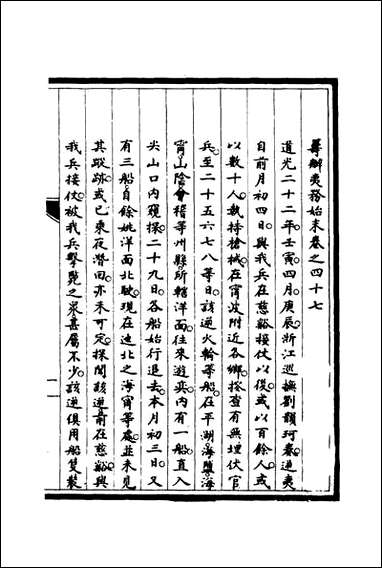 籌辦夷務始末卷之四十七
道光二十二年壬寅四月庚辰浙江巡撫劉韻珂奏逆夷
自前月初四日與我兵在慈谿接仗以後或以百餘人或
以數十人執持槍械在甯波附近各鄉搭查有無埋伏官
兵至二十五六七八等日該逆火輪等船在平湖海鹽海
甯山陰會稽等州縣所轄洋面往來遊奕內有一船直入
尖山口內窺探二十九日各船始行退去本月初三日又
有三船自餘姚洋面北駛現在迤北之海甯等處並未見
其蹤跡或已乘夜潛回亦未可定探聞該逆前在慈谿與
我兵接仗被我兵擊斃之衆甚屬不少該逆俱用船隻裝